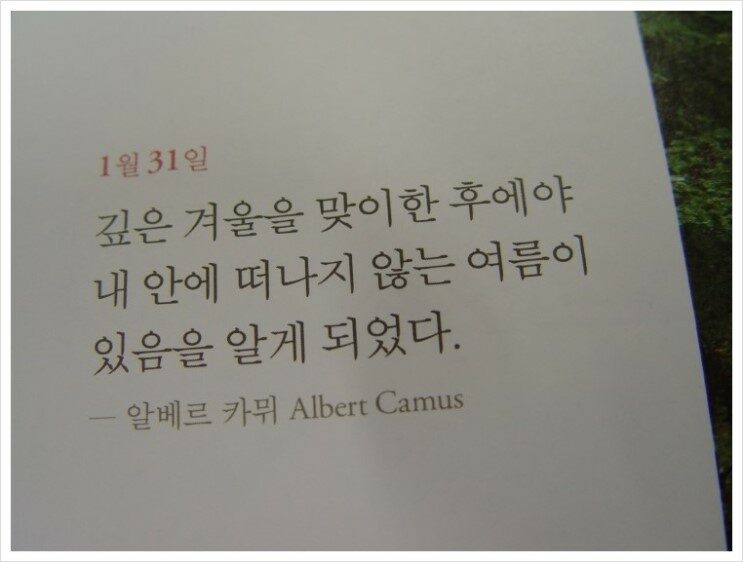 1월 31일
깊은 겨울을 맞이한 후에야
내 안에 떠나지 않는 여름이
있음을 알게 되었다.
— 알베르 카뮈 Albert Camus